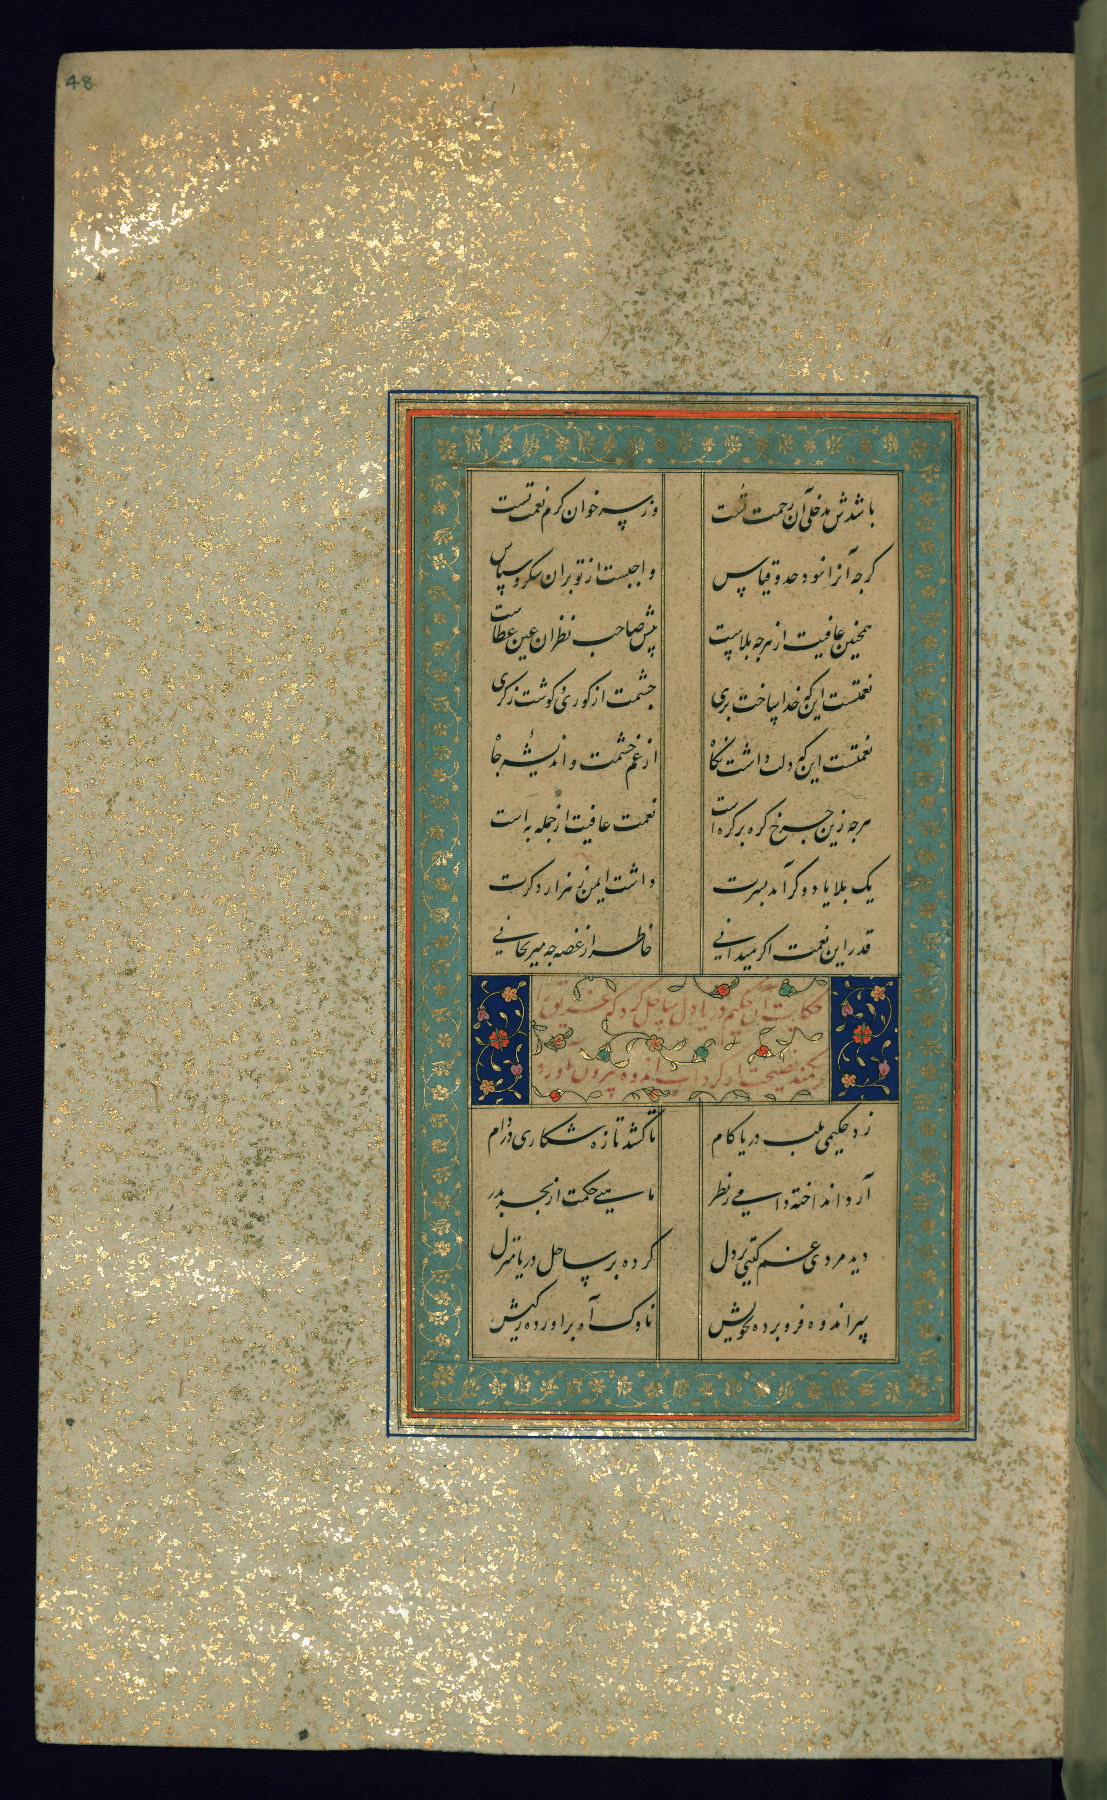 48
باشدش مدخلی آن رحمت تست
وز سر خوان کرم نعمت تست
کرجه آنرا نبود حد و قیاس
واجبست از تو بران شکر و سپاس
همجنین عافیت از هرجه بلاست
پیش صاحب نظران عین عطاست
نعمتست این که خدا ساخت بری
جشمت از کوری و کوشت ز کری
نعمتست این که دلت داشت نکاه
از غم حشمت و اندیشه جاه
هرجه زین جرخ کره بر کره است
نعمت عافیت از جمله به است
یک بلا یا دو کر آمد بسرت
داشت ایمن ز هزار دکرت
قدر این نعمت اکر میدانی
خاطر از غصه جه میرنجانی
حکایت آن حکیم دریا دل ساحل کرد که غم
بکمند نصیحت از کرداب اندوه بیرون آورد
زد حکیمی بلب دریا کام
تا کشد تازه شکاری در دام
آرد انداخته دامی ز نظر
ماهیی حکمت از بحر بدر
دید مردی غم کیتی بر دل
کرده بر ساحل دریا منزل
سر اندوه فرو برده بخویش
ناوک آه براورده ز کیش